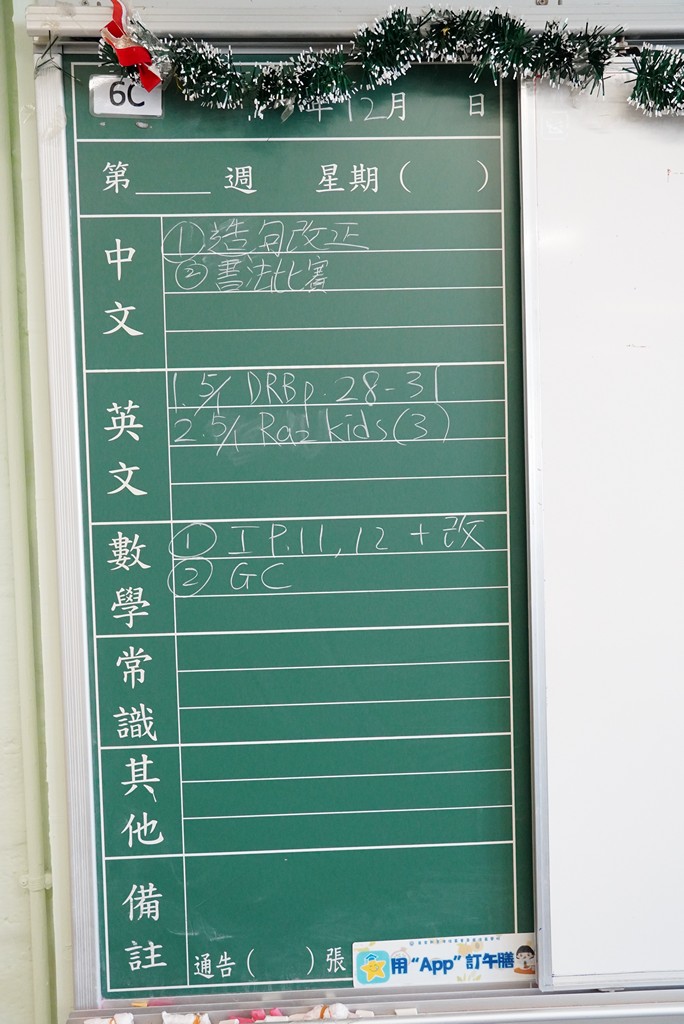 6C
年12月 日
第____週 星期( )
中文
①造句改正
②書法比賽
英文
1. 5/1 DRB p.28-31
2. 5/1 Raz kids(3)
數學
① I P.11,12 + 改
② GC
常識
其他
備註
通告( )張
用“App”訂午膳